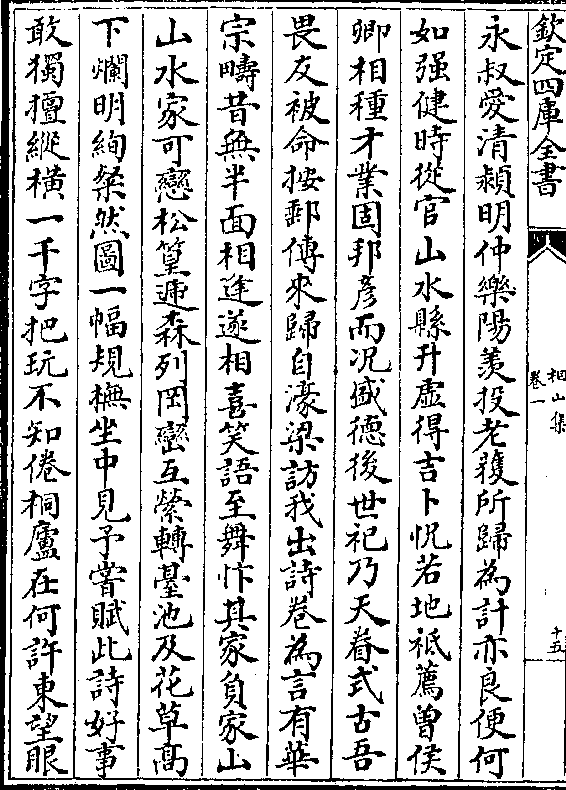 欽定四庫全書
相山集
卷一
十五
永叔愛清潁明仲樂陽羨投老穫所歸為計亦良便何
如强健時從官山水縣升虚得吉卜怳若地祇薦曽侯
卿相種才業固邦彦而况盛德後世祀乃天眷式古吾
畏友被命按郵傳來歸自濠梁訪我出詩卷為言有華
宗疇昔無半面相逢遂相喜笑語至舞忭其家負家山
山水家可戀松篁逓森列岡巒互縈轉臺池及花草髙
下爛明絢粲然圖一幅規橅坐中見予嘗賦此詩好事
敢獨擅縱横一千字把玩不知倦桐廬在何許東望眼